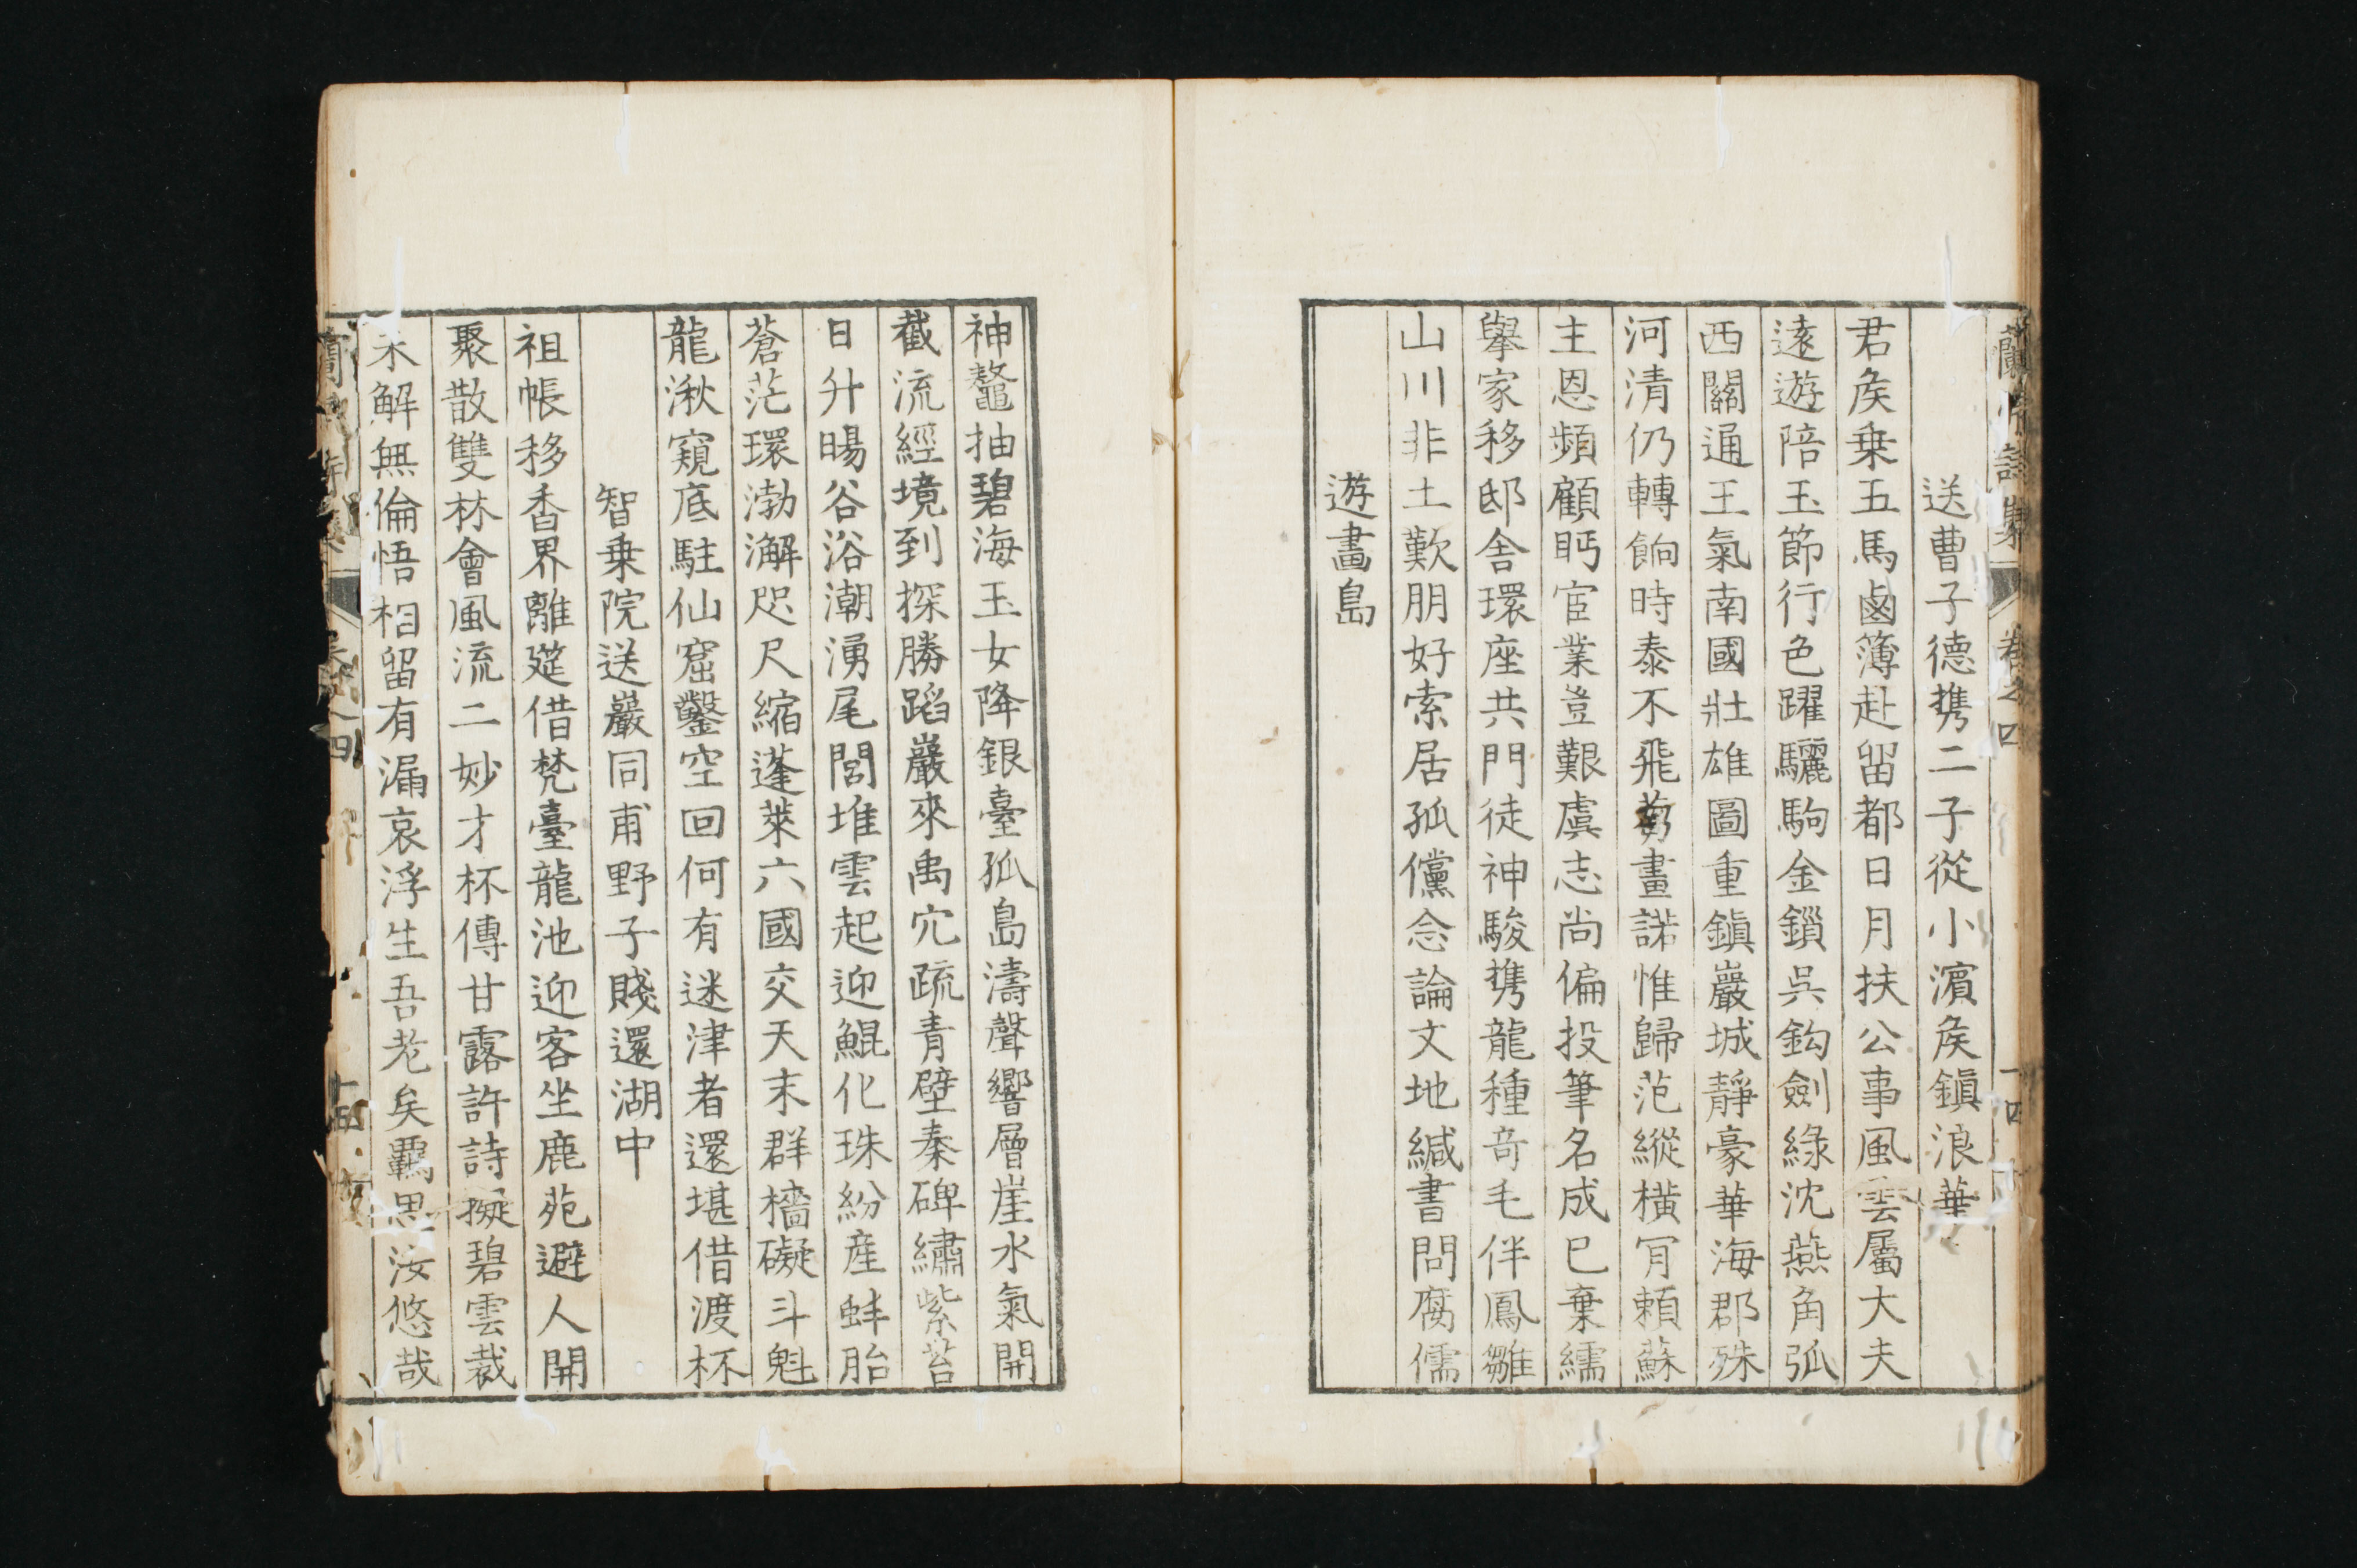 送曹子德携二子從小濵矦鎮浪華
君矦乗五馬鹵簿赴留都日月扶公事風雲屬大夫
遠遊陪玉節行色躍驪駒金鎻呉鈎劍綠沈燕角弧
西關通王氣南國壯雄圖重鎮巖城靜豪華海郡殊
河清仍轉餉時泰不飛蒭畫諾惟歸范縱橫肎頼蘇
主恩頻顧眄宦業豈艱虞志尚偏投筆名成已棄繻
擧家移邸舍環座共門徒神駿携龍種竒毛伴鳳雛
山川非土歎朋好索居孤儻念論文地緘書問腐儒
遊畫島
神鼇抽碧海玉女降銀臺孤島濤聲響層崖水氣開
截流經境到探勝蹈巖來禹穴疏青壁秦碑繡紫苔
日升暘谷浴潮湧尾閭堆雲起迎鯤化珠紛産蚌胎
蒼茫環渤澥咫尺縮蓬萊六國交天末群檣礙斗魁
龍湫窺底駐仙窟鑿空回何有迷津者還堪借渡杯
智乗院送巖同甫野子賤還湖中
祖帳移香界離筵借梵臺龍池迎客坐鹿苑避人開
聚散雙林會風流二妙才杯傳甘露許詩擬碧雲裁
未解無倫悟相留有漏哀浮生吾老矣羈思汝悠哉